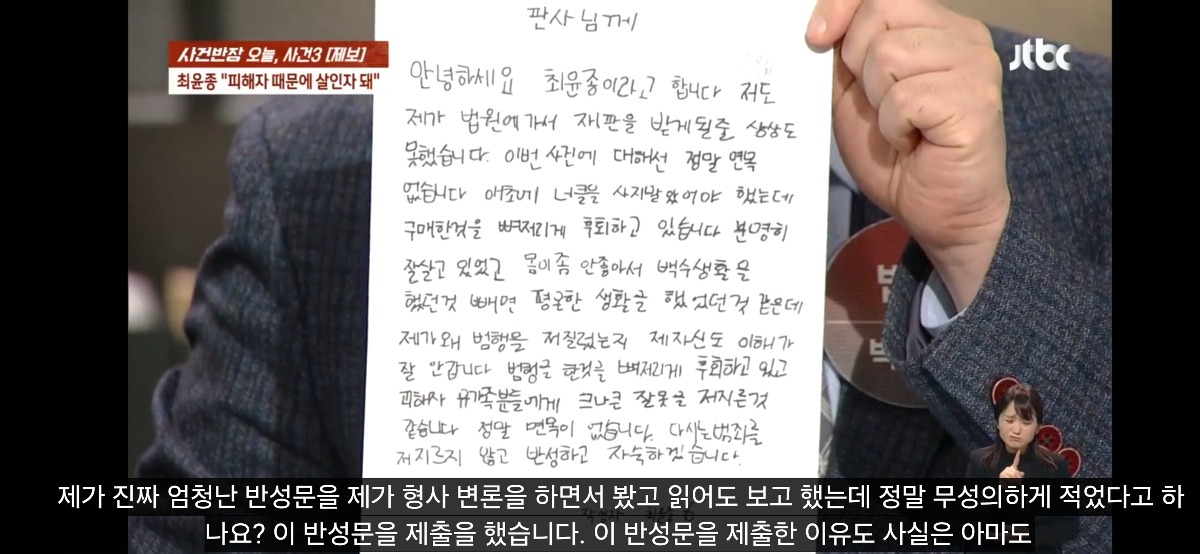 판사님께
사건반장 오늘, 사건3 [제보]
최윤종 "피해자 때문에 살인자 돼"
jtbc
안녕하세요 최윤종이라고 합니다 저도
제가 법원에가서 재판을 받게될줄 상상도
못했습니다. 이번 사건에 대해선 정말 면목
없습니다 애초에 너클을 사지말았어야 했는데
구매한것을 뼈저리게 후회하고 있습니다 분명히
잘살고 있었고 몸이좀 안좋아서 백수생활을
했던것 빼면 평온한 생활을 했었던것 같은데
제가왜 범행을 저질렀는지 제자신도 이해가
잘 안갑니다 범행을 한것을 뼈저리게 후회하고 있고
피해자 유가족분들에게 크나큰 잘못을 저지른것
같습니다 정말 면목이 없습니다. 다시는범죄를
저지르지 않고 반성하고 자숙하겠습니다.
제가 진짜 엄청난 반성문을 제가 형사 변론을 하면서 봤고 읽어도 보고 했는데 정말 무성의하게 적었다고 하
나요? 이 반성문을 제출을 했습니다. 이 반성문을 제출한 이유도 사실은 아마도